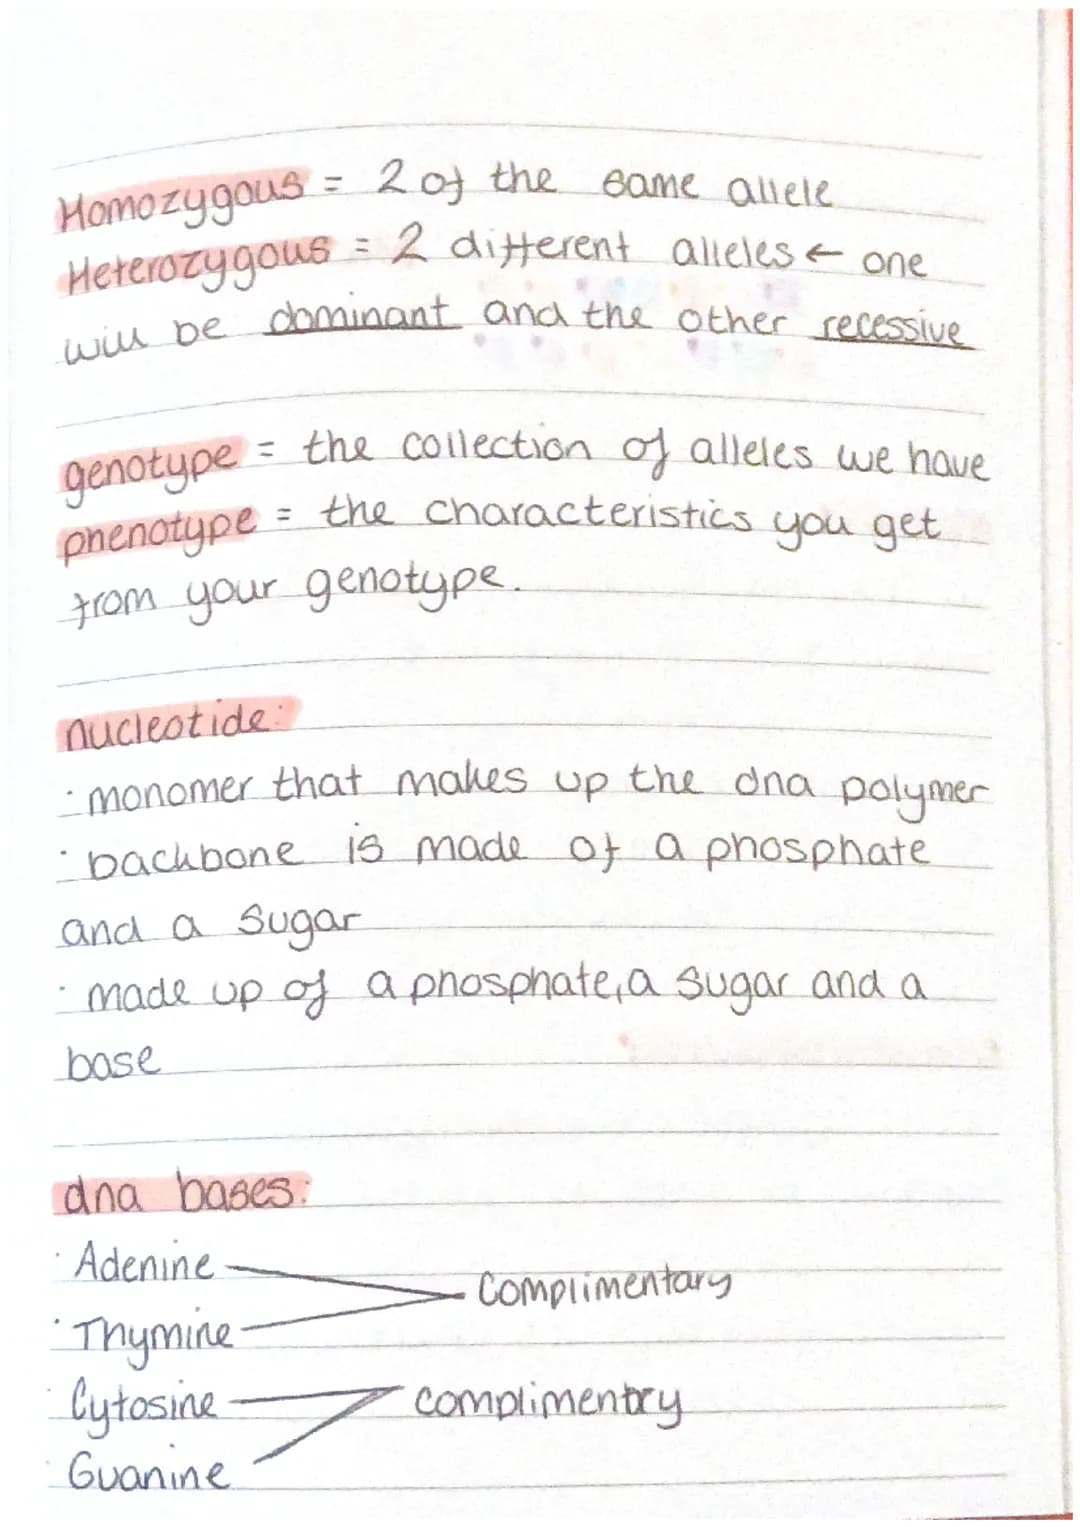 Homozygous = 2 of the same allele
Heterozygous = 2 different alleles ← one
will be dominant and the other recessive
genotype = the collection of alleles we have
phenotype = the characteristics you get
from your genotype.
nucleotide:
· monomer that makes up the dna polymer
· backbone is made of a phosphate
and a sugar
· made up of a phosphate, a sugar and a
base
dna bases:
· Adenine
complimentary
· Thymine
· Cytosine complimentry
· Guanine